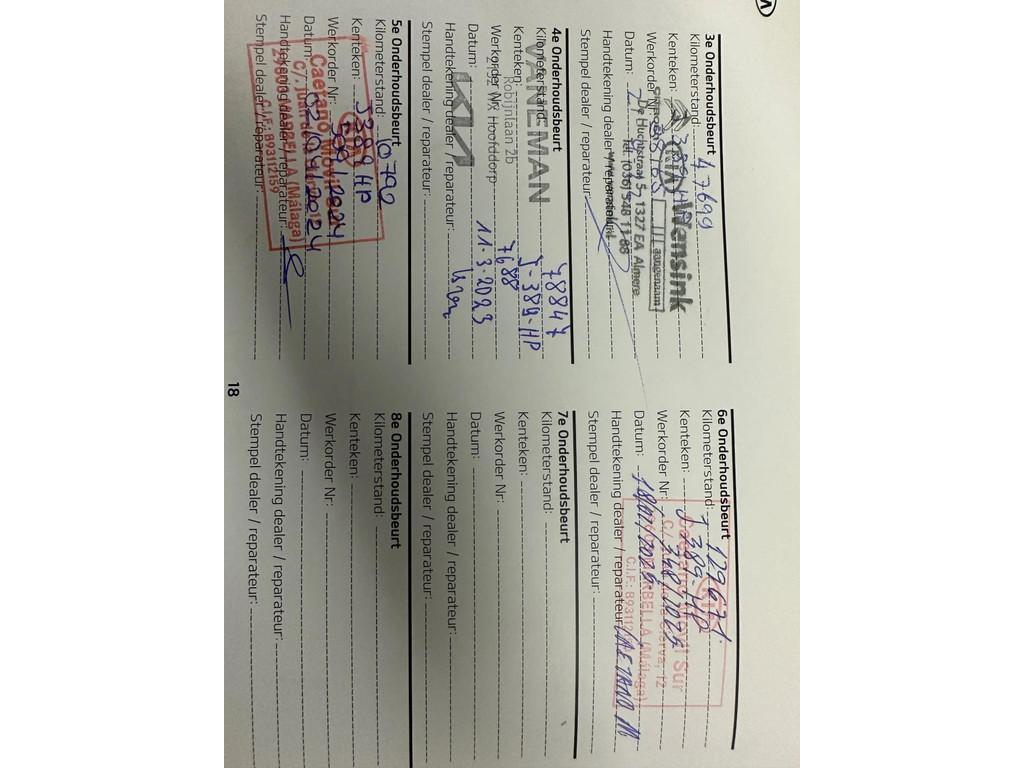 3e Onderhoudsbeurt
Kilometerstand 47699
Kenteken:
Werkorder
Datum:
Handtekening dealer / reparateur:
Stempel dealer / reparateur:
KIA Wensink
aangenaam
De Huchtstraat 5 - 1327 EA Almere
Tel. (036) 548 11 88
4e Onderhoudsbeurt
Kilometerstand: 78847
Kenteken: J-389-HP
Werkorder Nr: 7688
Datum: 11-3-2023
Handtekening dealer / reparateur:
Stempel dealer / reparateur:
VANEMAN
Robijnlaan 2b
Hoofddorp
KIA
5e Onderhoudsbeurt
Kilometerstand: 10792
Kenteken: J389HP
Werkorder Nr: 508/2024
Datum:
Handtekening dealer / reparateur:
Stempel dealer / reparateur:
Caetano Móvil
C/. Juan de la
29603 MARBELLA (Málaga)
C.I.F.: B93112159
6e Onderhoudsbeurt
Kilometerstand: 129671.
Kenteken: J389-HP
Werkorder Nr: 348/2025
Datum: 18/07/2025
Handtekening dealer / reparateur: CAETANO M
Stempel dealer / reparateur:
Sur
Cierva, 12
MARBELLA (Málaga)
7e Onderhoudsbeurt
Kilometerstand:
Kenteken:
Werkorder Nr:
Datum:
Handtekening dealer / reparateur:
Stempel dealer / reparateur:
8e Onderhoudsbeurt
Kilometerstand:
Kenteken:
Werkorder Nr:
Datum:
Handtekening dealer / reparateur:
Stempel dealer / reparateur:
18